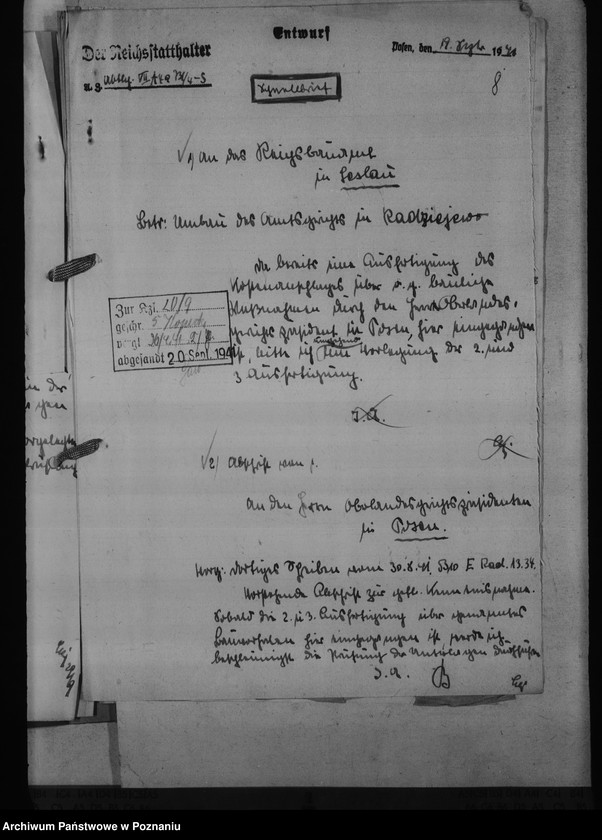 Entwurf
Der Reichsstatthalter
Posen, den 19. Sept. 1941
u. g. Abtlg.
Schnellbrief
8
1) An das Reichsbauamt
in Leslau
Betr: Umbau des Amtsgerichts in Radziejewo
Da bereits eine Ausfertigung des
Kostenanschlages über o. g. bauliche
Maßnahmen durch den Herrn Oberlandes-
gerichtspräsident in Posen, hier eingegangen
ist, bitte ich um Vorlegung der 2. und
3 Ausfertigung.
Zur Kzl. 20/9
geschr.
vergl
abgesandt 20. Sept. 1941
I. A.
2) Abschrift von 1.
An den Herrn Oberlandesgerichtspräsidenten
in Posen.
Vorg: Dortiges Schreiben vom 30.8.41 5310 E Rad. 13.34.
Vorstehende Abschrift zur gefl. Kenntnisnahme.
Sobald die 2. u 3. Ausfertigung über genanntes
Bauvorhaben hier eingegangen ist werde ich
beschleunigt die Prüfung der Unterlagen durchführen
I. A.
Archiwum Państwowe w Poznaniu